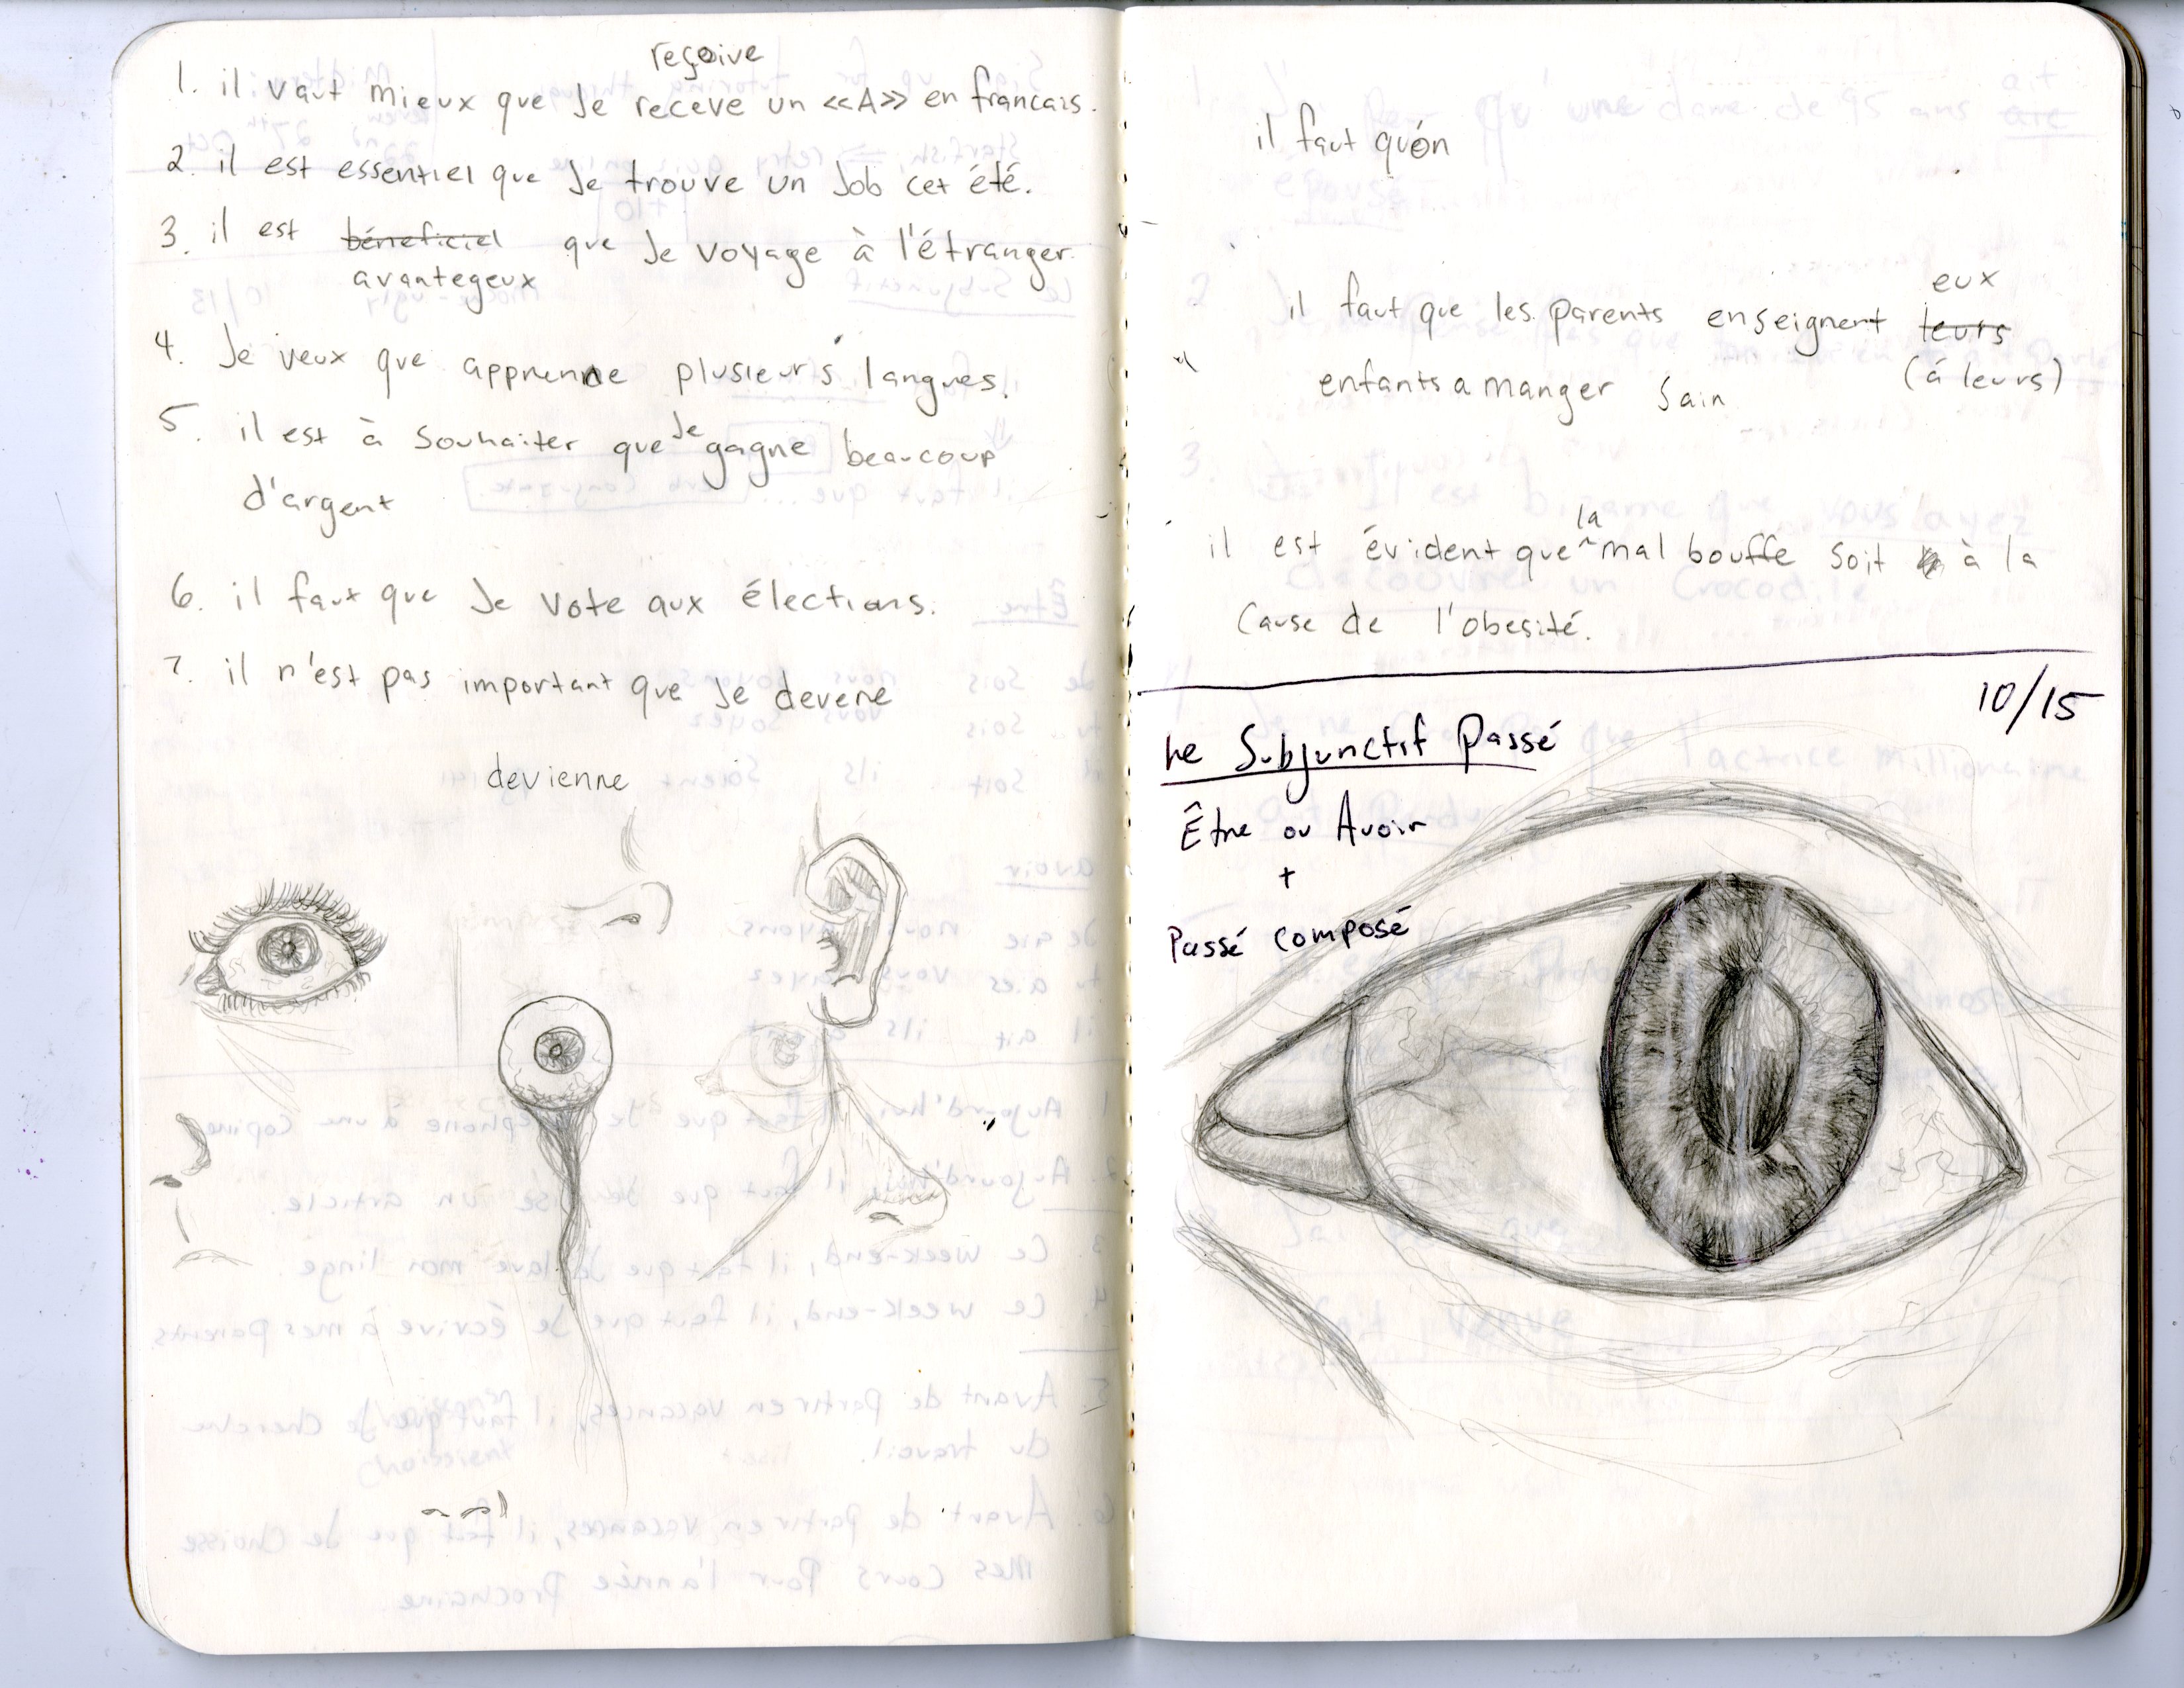 reçoive
1. il vaut mieux que Je receve un «A» en francais.
2. il est essentiel que Je trouve un Job cet été.
3. il est béneficiel que Je voyage à l'étranger.
avantegeux
4. Je veux que apprenne plusieurs langues.
5. il est à souhaiter que Je gagne beaucoup
d'argent
6. il faux que Je vote aux élections.
7. il n'est pas important que Je devene
devienne
il faut qu'on
eux
il faut que les parents enseignent leurs
(à leurs)
enfants a manger Sain
la
il est évident que ^ mal bouffe soit à la
Cause de l'obesité.
10/15
Le Subjunctif Passé
Être ou Avoir
+
Passé composé